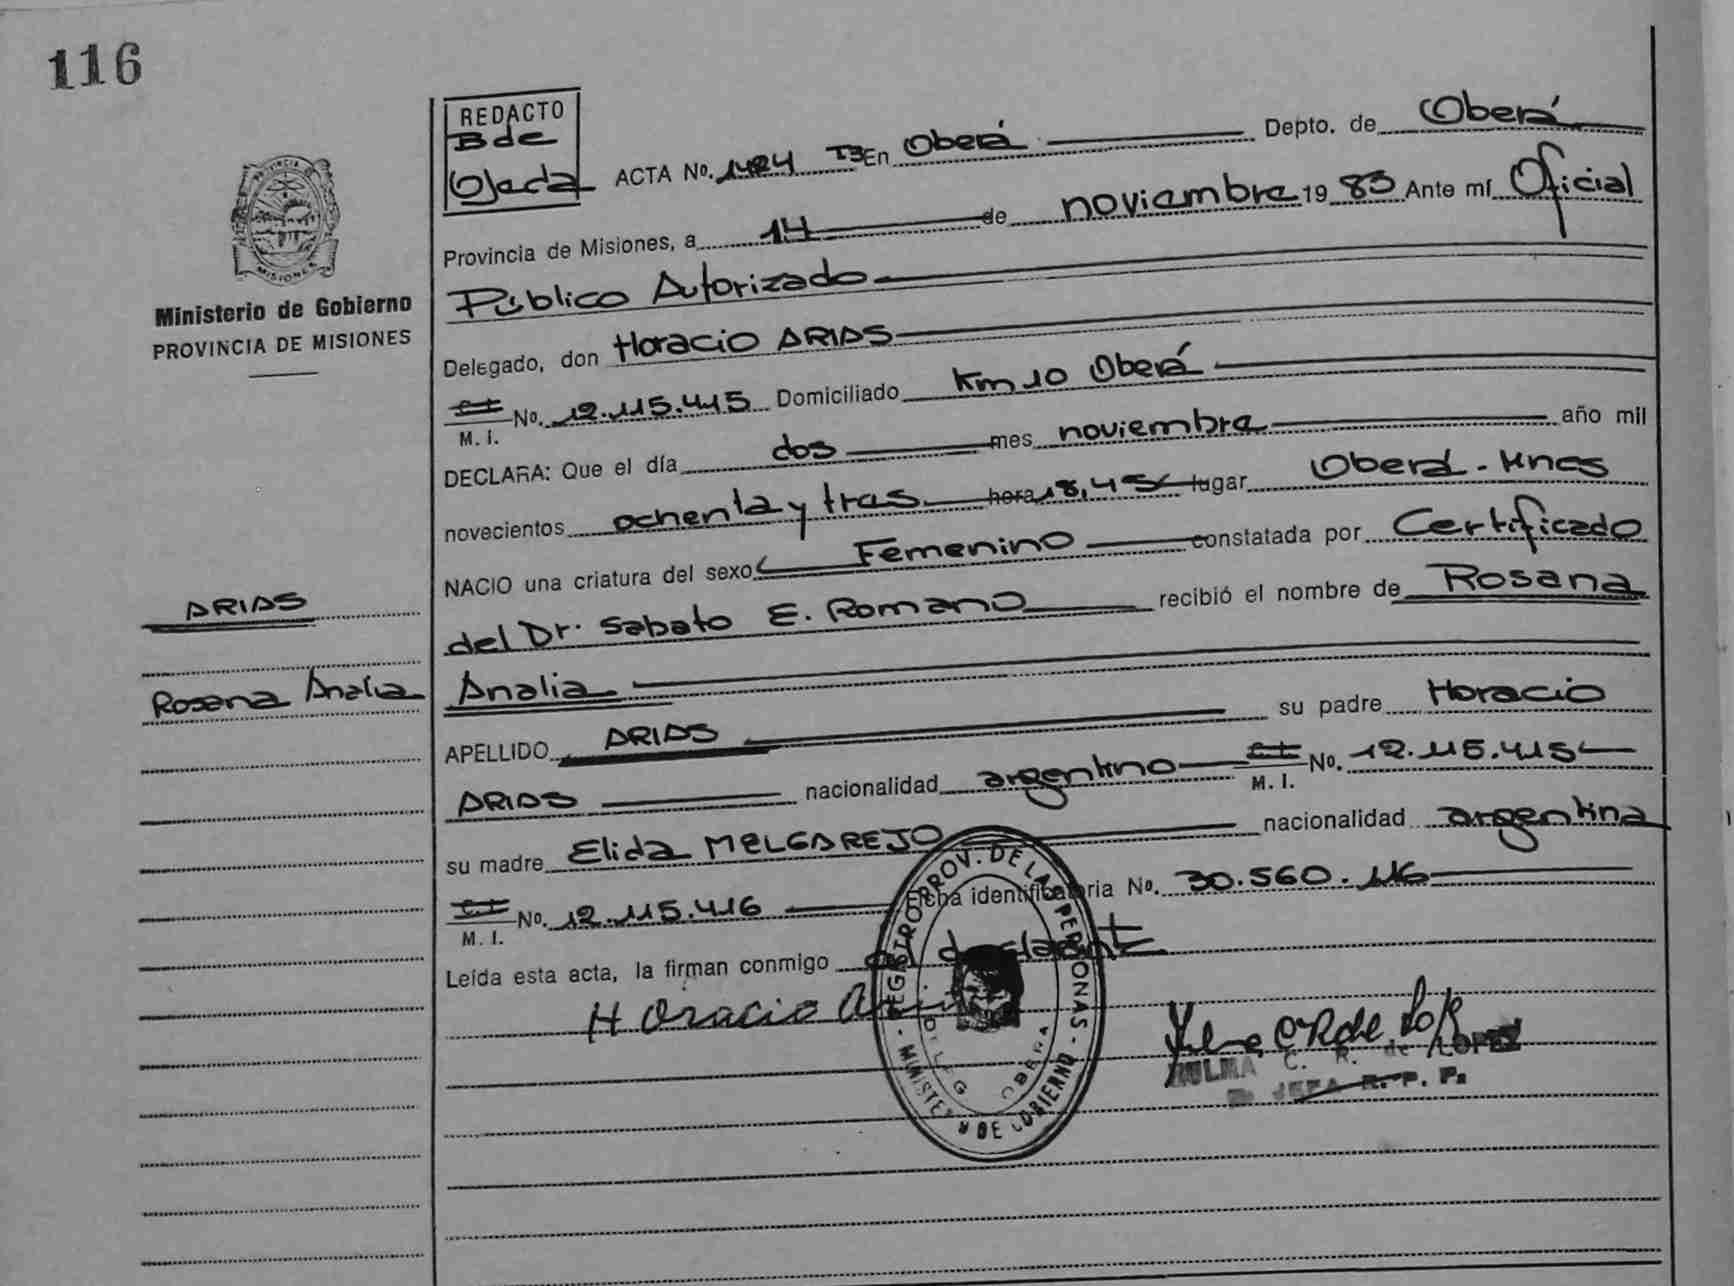 116
REDACTO
B de
Ojeda
ACTA Nº. 1424 T3 En Oberá Depto. de Oberá
Provincia de Misiones, a 14 de noviembre 1983 Ante mí Oficial
Público Autorizado
Delegado, don Horacio ARIAS
M. I. No. 12.115.415 Domiciliado Km 10 Oberá
DECLARA: Que el día dos mes noviembre año mil
novecientos ochenta y tres hora 18,45 lugar Oberá - Mnes
NACIO una criatura del sexo Femenino constatada por Certificado
del Dr. Sabato E. Romano recibió el nombre de Rosana
Analia
APELLIDO ARIAS su padre Horacio
ARIAS nacionalidad argentino M. I. No. 12.115.415
su madre Elida MELGAREJO nacionalidad argentina
M. I. No. 12.115.416 Ficha identificatoria No. 30.560.116
Leída esta acta, la firman conmigo el declarante
Horacio
ZULMA C. R. de LOPEZ
JEFA R. P. P.
REGISTRO PROV. DE LAS PERSONAS - MINISTERIO DE GOBIERNO -
DELEG. OBERA
PROVINCIA
MISIONES
Ministerio de Gobierno
PROVINCIA DE MISIONES
ARIAS
Rosana Analia